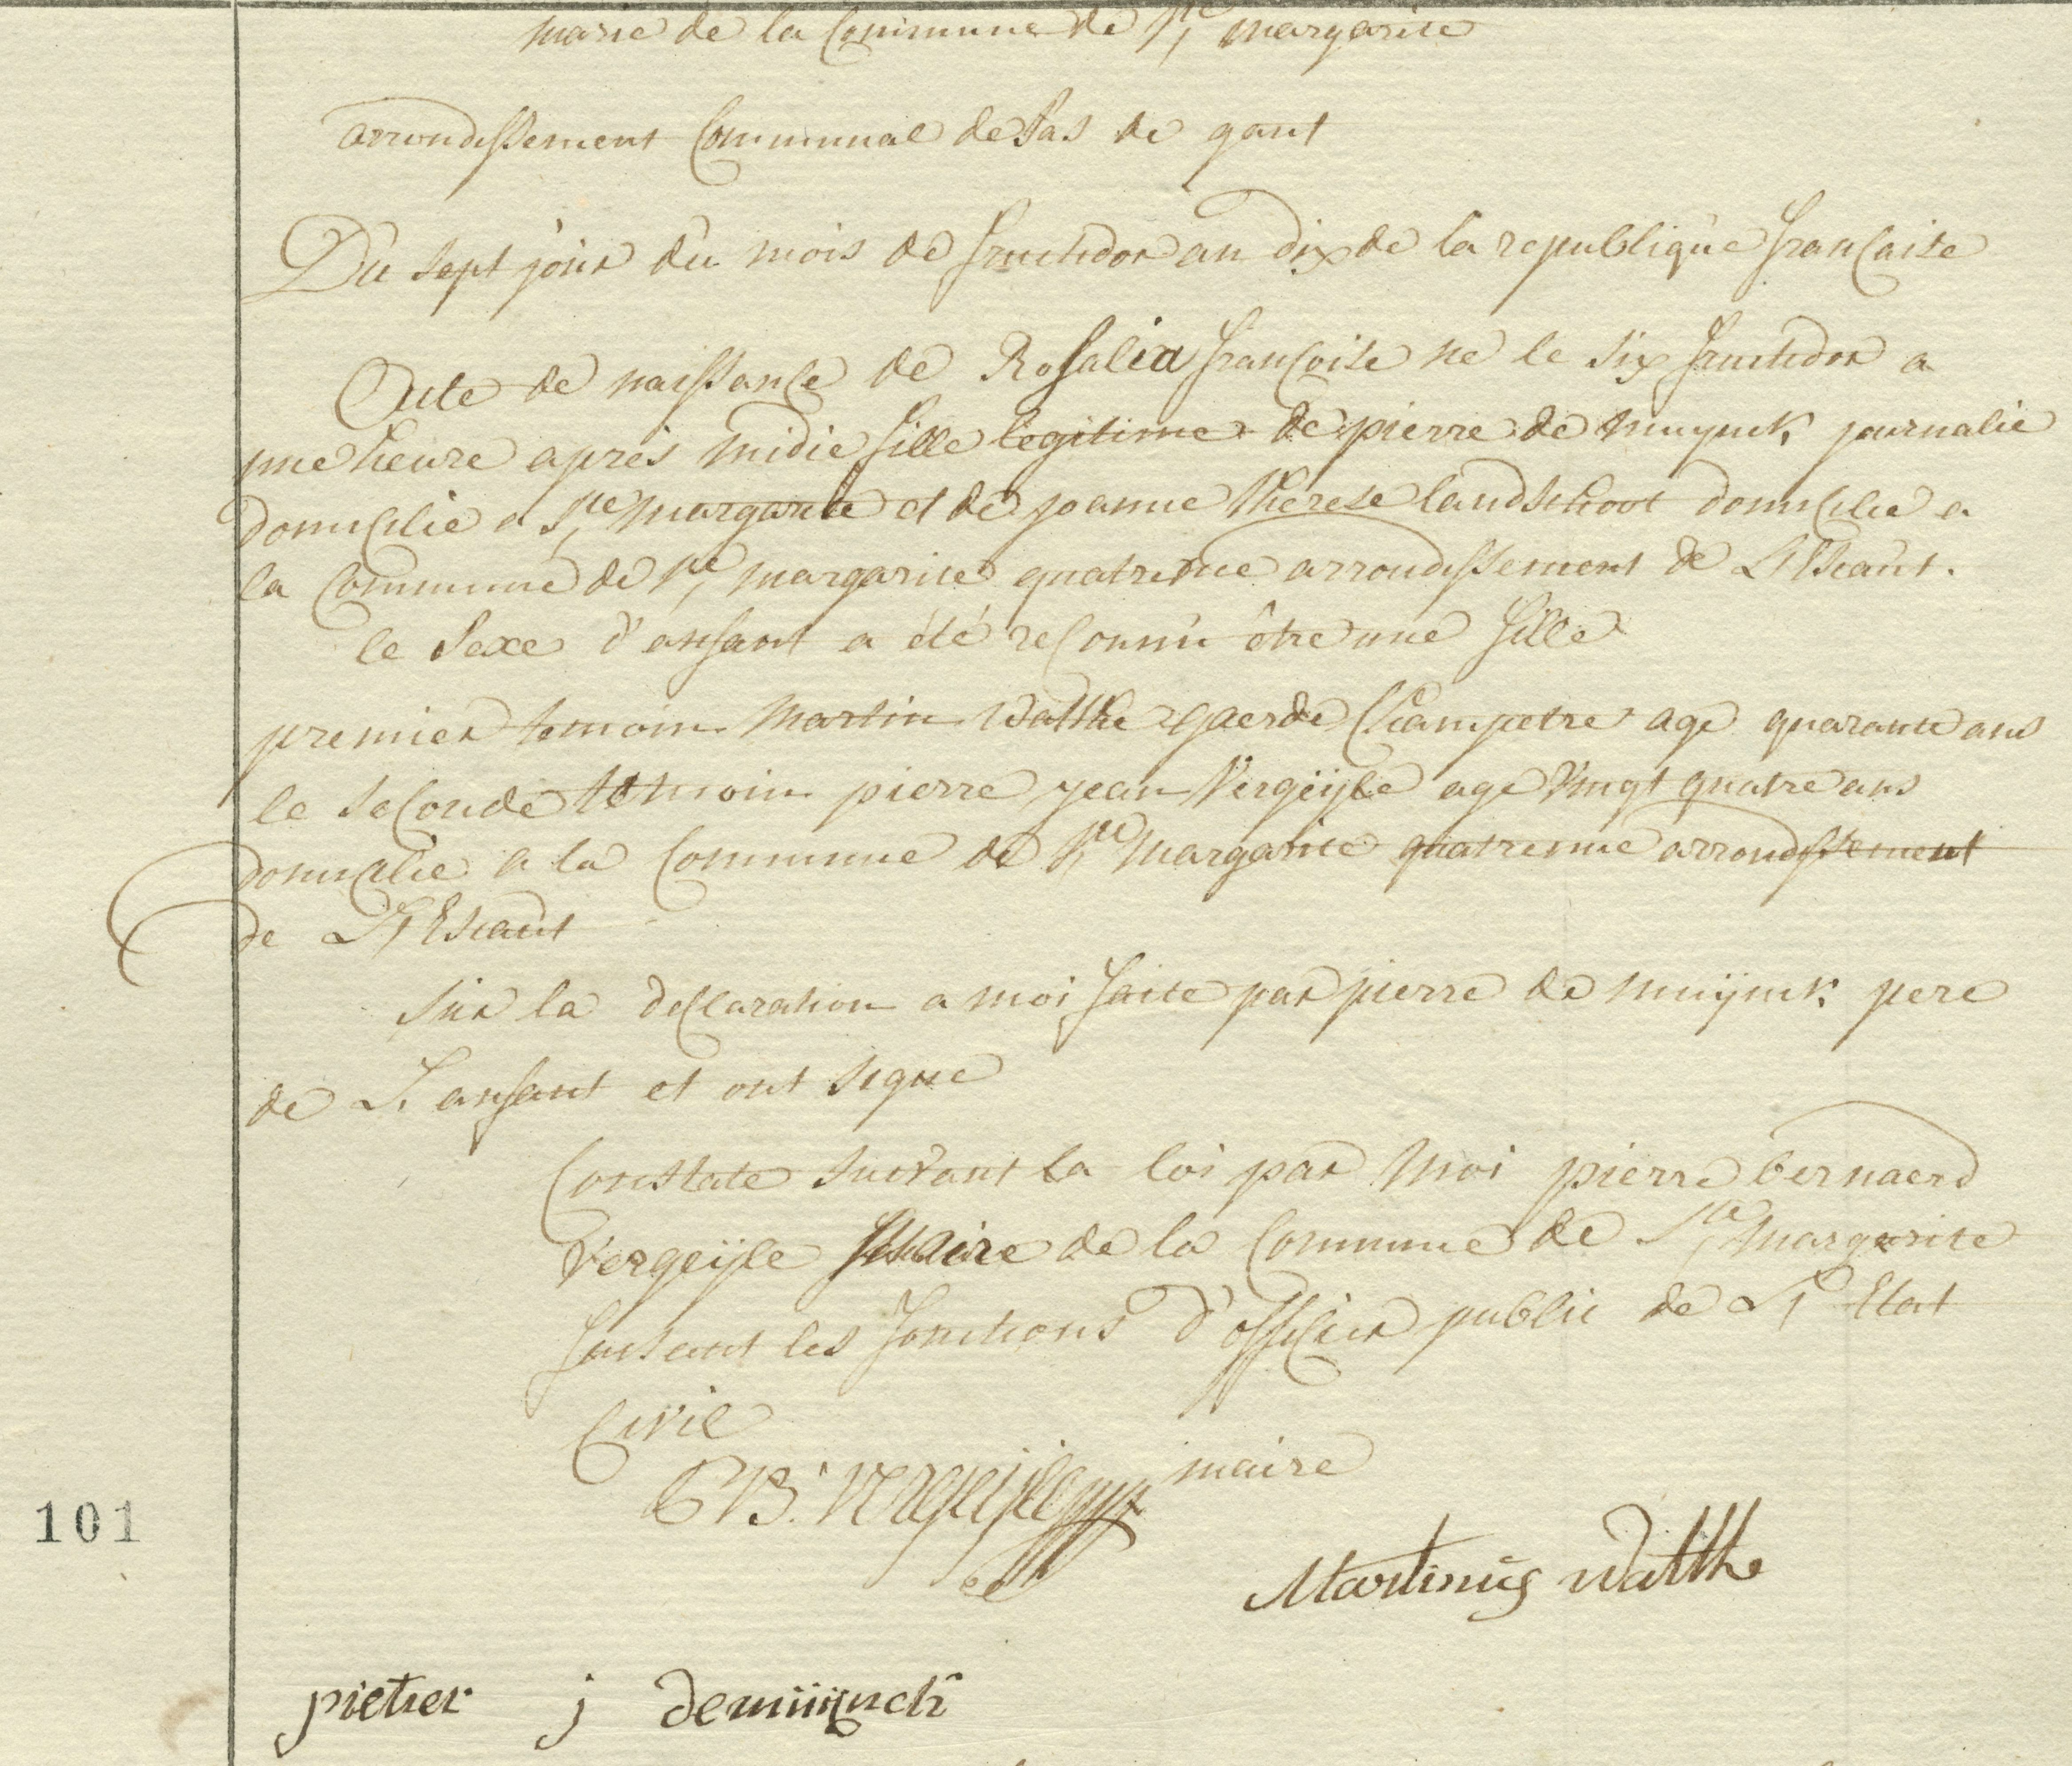 marie de la Commune de Ste margarite
arrondissement Communal de Sas de gant
Du sept jour du mois de fructidor an dix de la republique francaise
Acte de naissance de Rosalia francoise ne le six fructidor a
une heure apres midie fille legitime de pierre de muynck journalie
domicilie a Ste margarite et de joanne therese landschoot domicilie a
la Commune de Ste margarite quatrieme arrondissement de L'Escaut.
le Sexe d'enfant a été reconnu être une fille
premier temoin martin Watthe gaerde Champetre age quarante ans
le seconde temoin pierre jean Vergeijle age Vingt quatre ans
domicilie a la Commune de Ste margarite quatrieme arrondissement
de L'Escaut
sur la declaration a moi faite par pierre de muijnck pere
de L'enfant et ont signe
Constate suivant la loi par moi pierre bernaerd
Vergeijle maire de la Commune de Ste margarite
faisant les fonctions d'officier public de L'Etat
Civile
PB. Vergeijle maire
101
Martinus Watthe
pieter j demuijnck